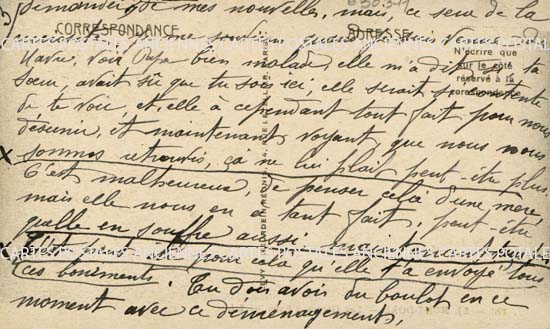 5) demander de mes nouvelles, mais, ce sera de la
CORRESPONDANCE
ADRESSE
N'écrire que
sur le côté
réservé à la
correspondance
Havre, voir bien malade, elle m'a dit si ta
sœur, avait sû que tu sois ici, elle serait si contente
de te voir, et, elle a cependant tout fait pour nous
désunir, Et maintenant voyant, que nous nous
x sommes retrouvés, ça ne lui plait peut-être plus
C'est malheureux, de penser cela d'une mère,
mais elle nous en a tant fait, peut-être
qu'elle en souffre aussi.
C'est pour cela qu'elle t'a envoyé tous
ces boniments. Tu dois avoir du boulot en ce
moment avec ce déménagement.
CARTES POSTALES ANCIENNES